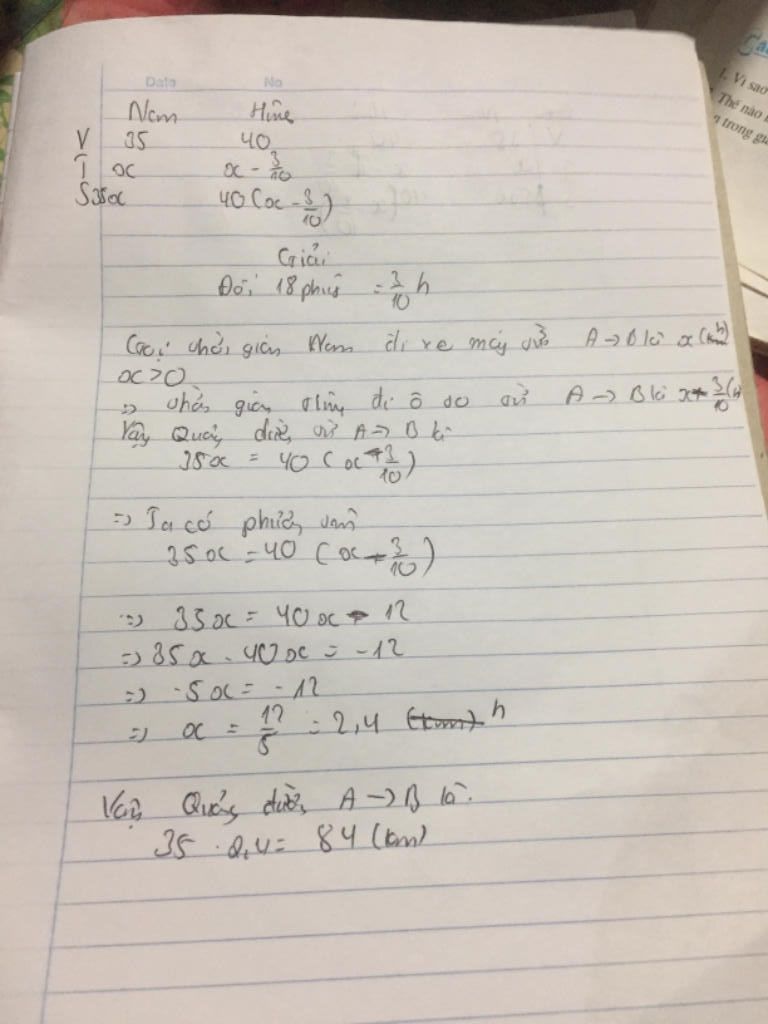 Date No
Nam Hùng
V 35 40
T x x - 3/10
S 35x 40(x - 3/10)
Giải
Đổi 18 phút = 3/10 h
Gọi thời gian Nam đi xe máy từ A → B là x (h)
x > 0
=> thời gian Hùng đi ô tô từ A → B là x - 3/10 (h
Vậy Quãng đường từ A → B là
35x = 40 (x - 3/10)
=> Ta có phương trình
35x = 40 (x - 3/10)
=> 35x = 40x - 12
=> 35x - 40x = -12
=> -5x = -12
=> x = 12/5 = 2,4 (km) h
Vậy Quãng đường A → B là.
35 . 2,4 = 84 (km)
1. Vì sao
Thế nào
n trong gia